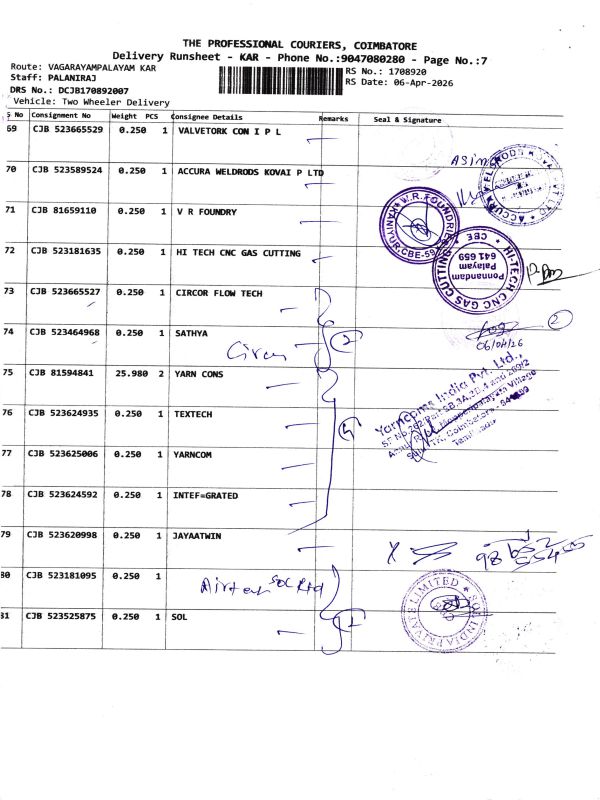 THE PROFESSIONAL COURIERS, COIMBATORE
Delivery Runsheet - KAR - Phone No.:9047080280 - Page No.:7
Route: VAGARAYAMPALAYAM KAR
RS No.: 1708920
Staff: PALANIRAJ
RS Date: 06-Apr-2026
DRS No.: DCJB170892007
Vehicle: Two Wheeler Delivery
S No Consignment No Weight PCS Consignee Details Remarks Seal & Signature
69 CJB 523665529 0.250 1 VALVETORK CON I P L
70 CJB 523589524 0.250 1 ACCURA WELDRODS KOVAI P LTD
71 CJB 81659110 0.250 1 V R FOUNDRY
V.R. FOUNDRIES
CBE-59
72 CJB 523181635 0.250 1 HI TECH CNC GAS CUTTING
HI-TECH CNC GAS CUTTING CBE
Ponnandam
Palayam
641 659
73 CJB 523665527 0.250 1 CIRCOR FLOW TECH
74 CJB 523464968 0.250 1 SATHYA
2
2
06/04/26
75 CJB 81594841 25.980 2 YARN CONS
Yarncoms India Pvt. Ltd.,
76 CJB 523624935 0.250 1 TEXTECH
77 CJB 523625006 0.250 1 YARNCOM
78 CJB 523624592 0.250 1 INTEF=GRATED
79 CJB 523620998 0.250 1 JAYAATWIN
X
80 CJB 523181095 0.250 1
81 CJB 523525875 0.250 1 SOL
SOL INDIA PRIVATE LIMITED